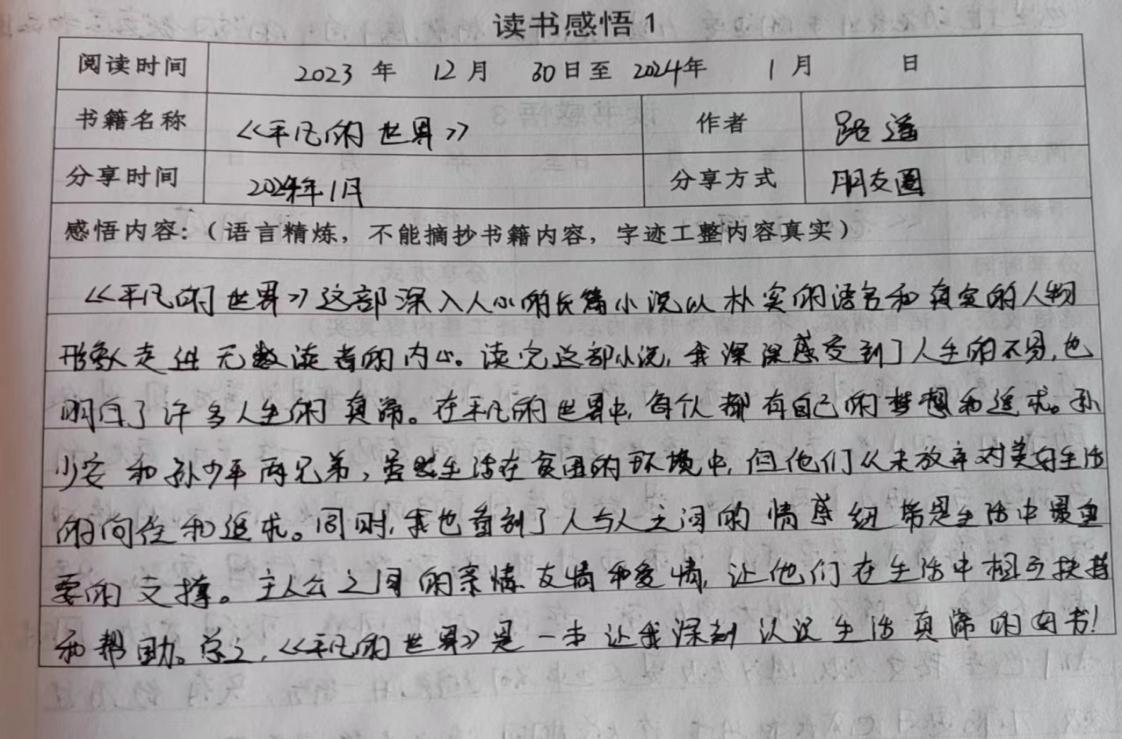 读书感悟1
阅读时间 2023 年 12 月 30 日至 2024年 1 月 日
书籍名称 《平凡的世界》 作者 路遥
分享时间 2024年1月 分享方式 朋友圈
感悟内容：（语言精炼，不能摘抄书籍内容，字迹工整内容真实）
《平凡的世界》这部深入人心的长篇小说以朴实的语言和真实的人物
形象走进无数读者的内心。读完这部小说，我深深感受到了人生的不易，也
明白了许多人生的真谛。在平凡的世界中，每个人都有自己的梦想和追求。孙
少安和孙少平两兄弟，虽然生活在贫困的环境中，但他们从未放弃对美好生活
的向往和追求。同时，我也看到了人与人之间的情感纽带是生活中最重
要的支撑。主人公之间的亲情友情和爱情，让他们在生活中相互扶持
和帮助。总之，《平凡的世界》是一本让我深刻认识生活真谛的好书！